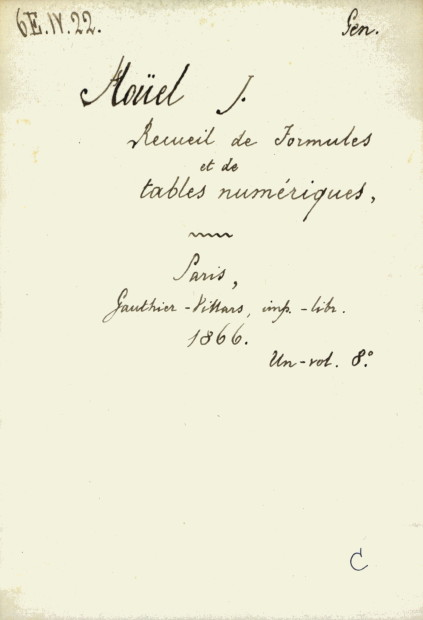 6E.IV.22.
Gen.
Hoüel J.
Recueil de Formules
et de
tables numériques,
Paris,
Gauthier-Villars, imp.-libr.
1866.
Un-vol. 8.º
C